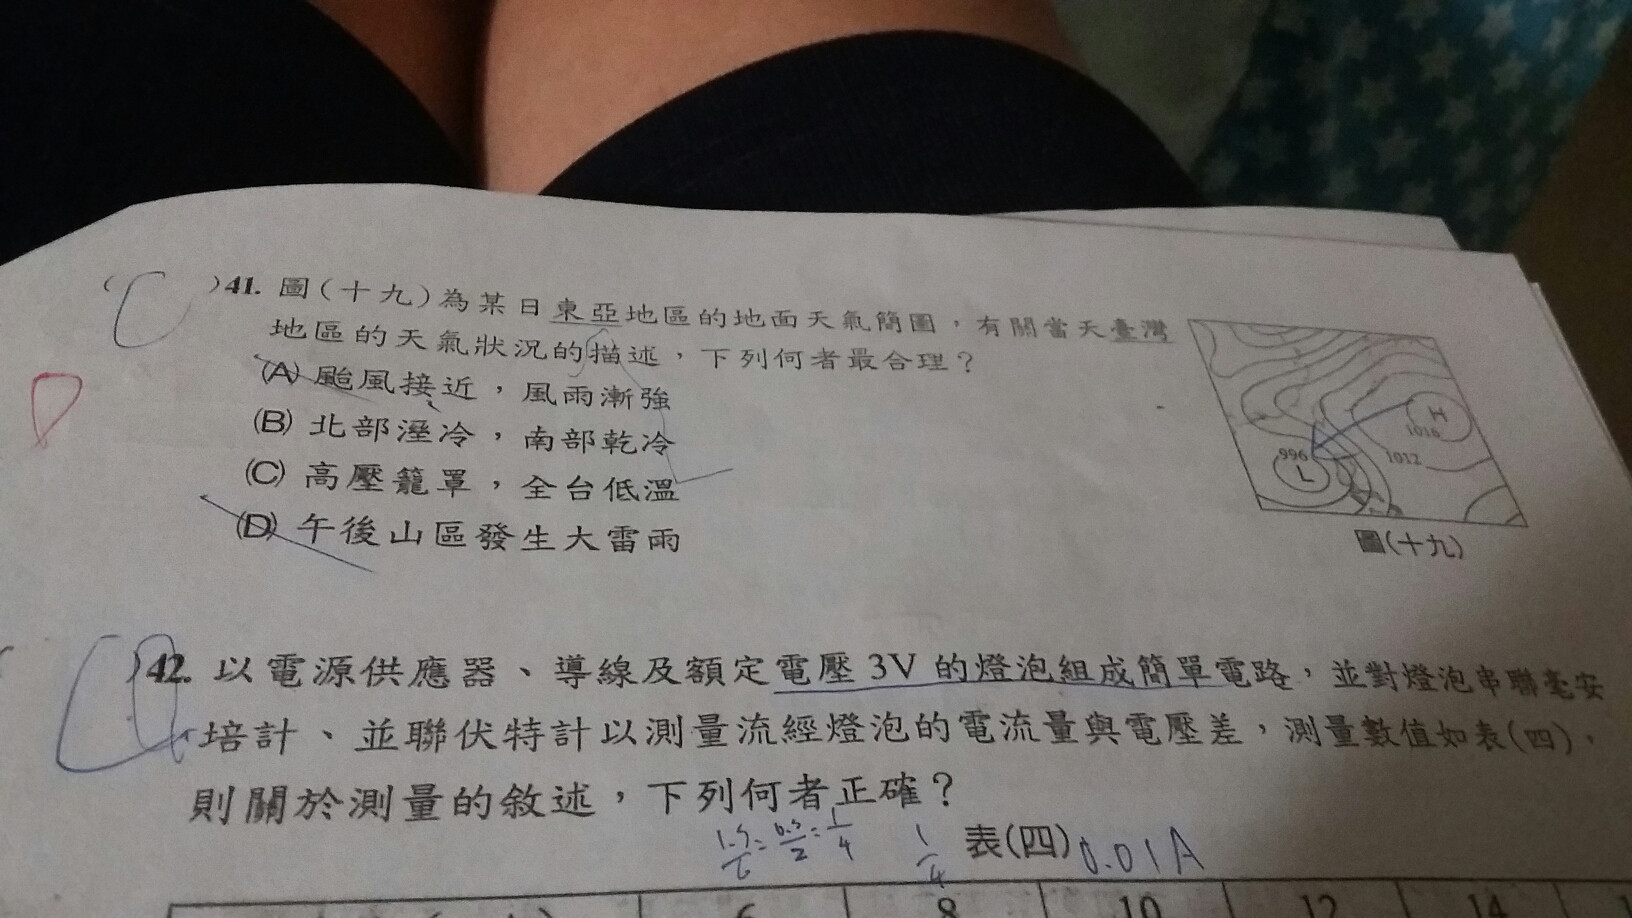 ( C )41. 圖(十九)為某日東亞地區的地面天氣簡圖，有關當天臺灣
地區的天氣狀況的描述，下列何者最合理？
(A) 颱風接近，風雨漸強
(B) 北部溼冷，南部乾冷
(C) 高壓籠罩，全台低溫
(D) 午後山區發生大雷雨
H
1016
1012
996
L
圖(十九)
)42. 以電源供應器、導線及額定電壓 3V 的燈泡組成簡單電路，並對燈泡串聯毫安
培計、並聯伏特計以測量流經燈泡的電流量與電壓差，測量數值如表(四)，
則關於測量的敘述，下列何者正確？
1/4 表(四) 0.01A
6 8 10 12 14